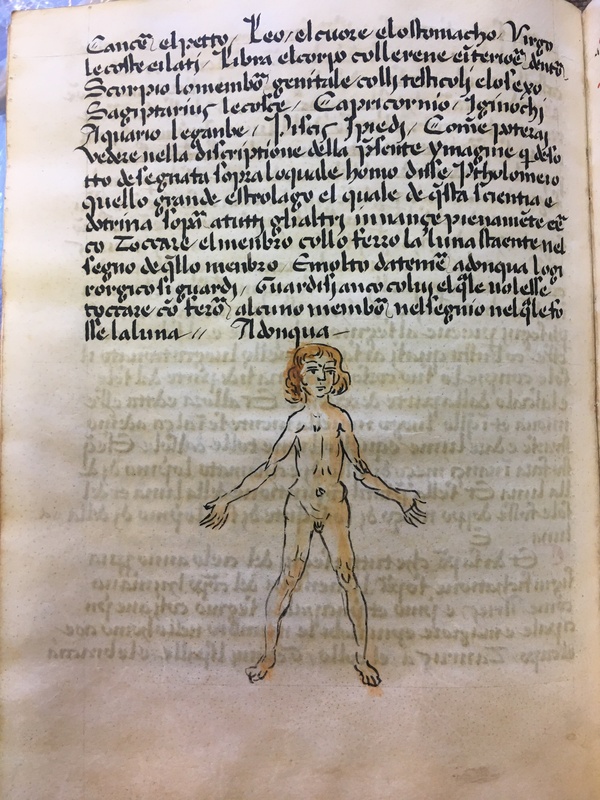 Cancẽ el petto / Leo / el cuore e lo stomacho / Virgo
le coste ei lati / Libra el corpo coll e rene ei terioẽ dento
Scorpio lo membõ genitale colli testicoli e lo sexo
Sagiptarius le cosce / Capricornio / I ginochi
Aquario le ganbe / Piscis I piedi / Come poterai
vedere nella discriptione della psente ymagine q̃ de so
tto desegnata sopra lo quale homo disse Ptholomeio
quello grande estrolago el quale de q̃sta scientia e
dotrina sopã a tutti gli altri innançe pienamẽte cẽ
co Toccare el menbro collo ferro la luna staente nel
segno de q̃llo menbro / E molto da temẽ adonqua logi
rorgico si guardi / Guardisi anco colui el q̃le volesse
toccare cõ ferõ alcuno membõ nel segnio nel q̃le fo
sse la luna // Adonqua